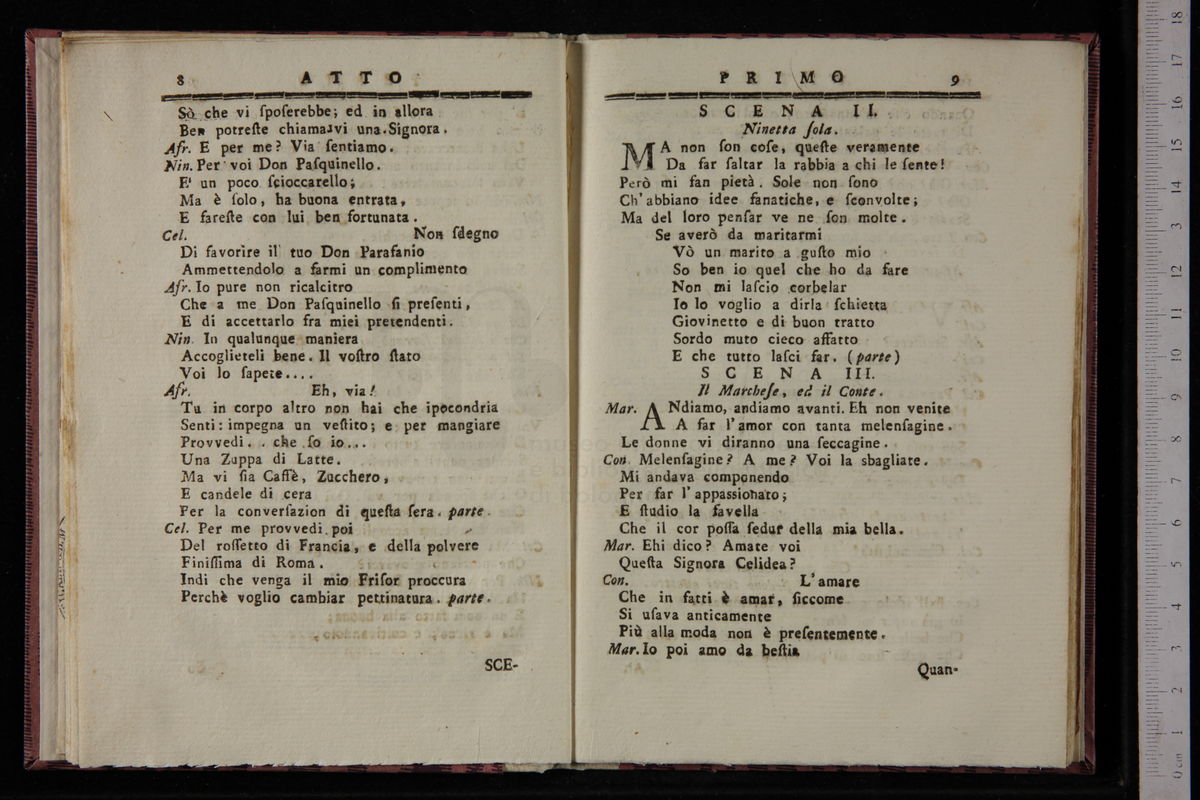 8 ATTO
Sò che vi ſpoſerebbe; ed in allora
Ben potreſte chiamarvi una Signora.
Afr. E per me? Via ſentiamo.
Nin. Per voi Don Paſquinello.
E' un poco ſcioccarello;
Ma è ſolo, ha buona entrata,
E fareſte con lui ben fortunata.
Cel. Non ſdegno
Di favorire il tuo Don Parafanio
Ammettendolo a farmi un complimento
Afr. Io pure non ricalcitro
Che a me Don Paſquinello ſi preſenti,
E di accettarlo fra miei pretendenti.
Nin. In qualunque maniera
Accoglieteli bene. Il voſtro ſtato
Voi lo ſapete....
Afr. Eh, via!
Tu in corpo altro non hai che ipocondria
Senti: impegna un veſtito; e per mangiare
Provvedi. . che ſo io...
Una Zuppa di Latte.
Ma vi ſia Caffè, Zucchero,
E candele di cera
Per la converſazion di queſta ſera. parte.
Cel. Per me provvedi poi
Del roſſetto di Francia, e della polvere
Finiſſima di Roma.
Indi che venga il mio Friſor proccura
Perchè voglio cambiar pettinatura. parte.
SCE-
PRIMO 9
SCENA II.
Ninetta ſola.
MA non ſon coſe, queſte veramente
Da far ſaltar la rabbia a chi le ſente!
Però mi fan pietà. Sole non ſono
Ch'abbiano idee fanatiche, e ſconvolte;
Ma del loro penſar ve ne ſon molte.
Se averò da maritarmi
Vò un marito a guſto mio
So ben io quel che ho da fare
Non mi laſcio corbelar
Io lo voglio a dirla ſchietta
Giovinetto e di buon tratto
Sordo muto cieco affatto
E che tutto laſci far. (parte)
SCENA III.
Il Marcheſe, ed il Conte.
Mar. ANdiamo, andiamo avanti. Eh non venite
A far l'amor con tanta melenſagine.
Le donne vi diranno una ſeccagine.
Con. Melenſagine? A me? Voi la sbagliate.
Mi andava componendo
Per far l'appaſſionato;
E ſtudio la favella
Che il cor poſſa ſedur della mia bella.
Mar. Ehi dico? Amate voi
Queſta Signora Celidea?
Con. L'amare
Che in fatti è amar, ſiccome
Si uſava anticamente
Più alla moda non è preſentemente.
Mar. Io poi amo da beſtia
Quan-
0 cm 1 2 3 4 5 6 7 8 9 10 11 12 13 14 15 16 17 18